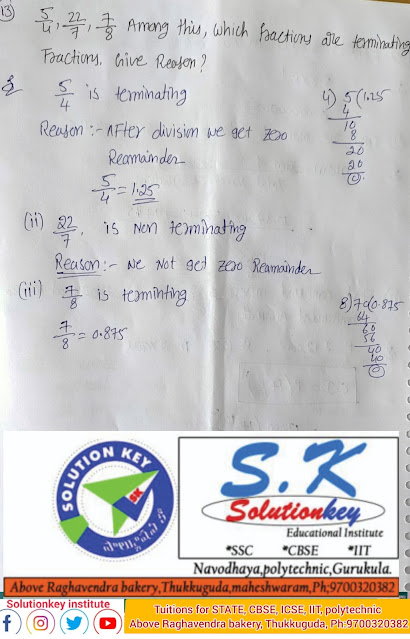 13) 5/4, 22/7, 7/8 Among this, which fractions are terminating
Fractions. Give Reason?
5/4 is terminating
4) 5 (1.25
4
10
8
20
20
0
Reason :- After division we get zero
Reamainder
5/4 = 1.25
(ii) 22/7, is Non terminating
Reason :- we Not get zero Reamainder
(iii) 7/8 is terminting
8) 70(0.875
64
60
56
40
40
0
7/8 = 0.875
SOLUTION KEY
SK
S.K
Solutionkey
Educational Institute
*SSC *CBSE *IIT
Navodhaya,polytechnic,Gurukula.
Above Raghavendra bakery,Thukkuguda,maheshwaram,Ph:9700320382
Solutionkey institute
Tuitions for STATE, CBSE, ICSE, IIT, polytechnic
Above Raghavendra bakery, Thukkuguda, Ph:9700320382